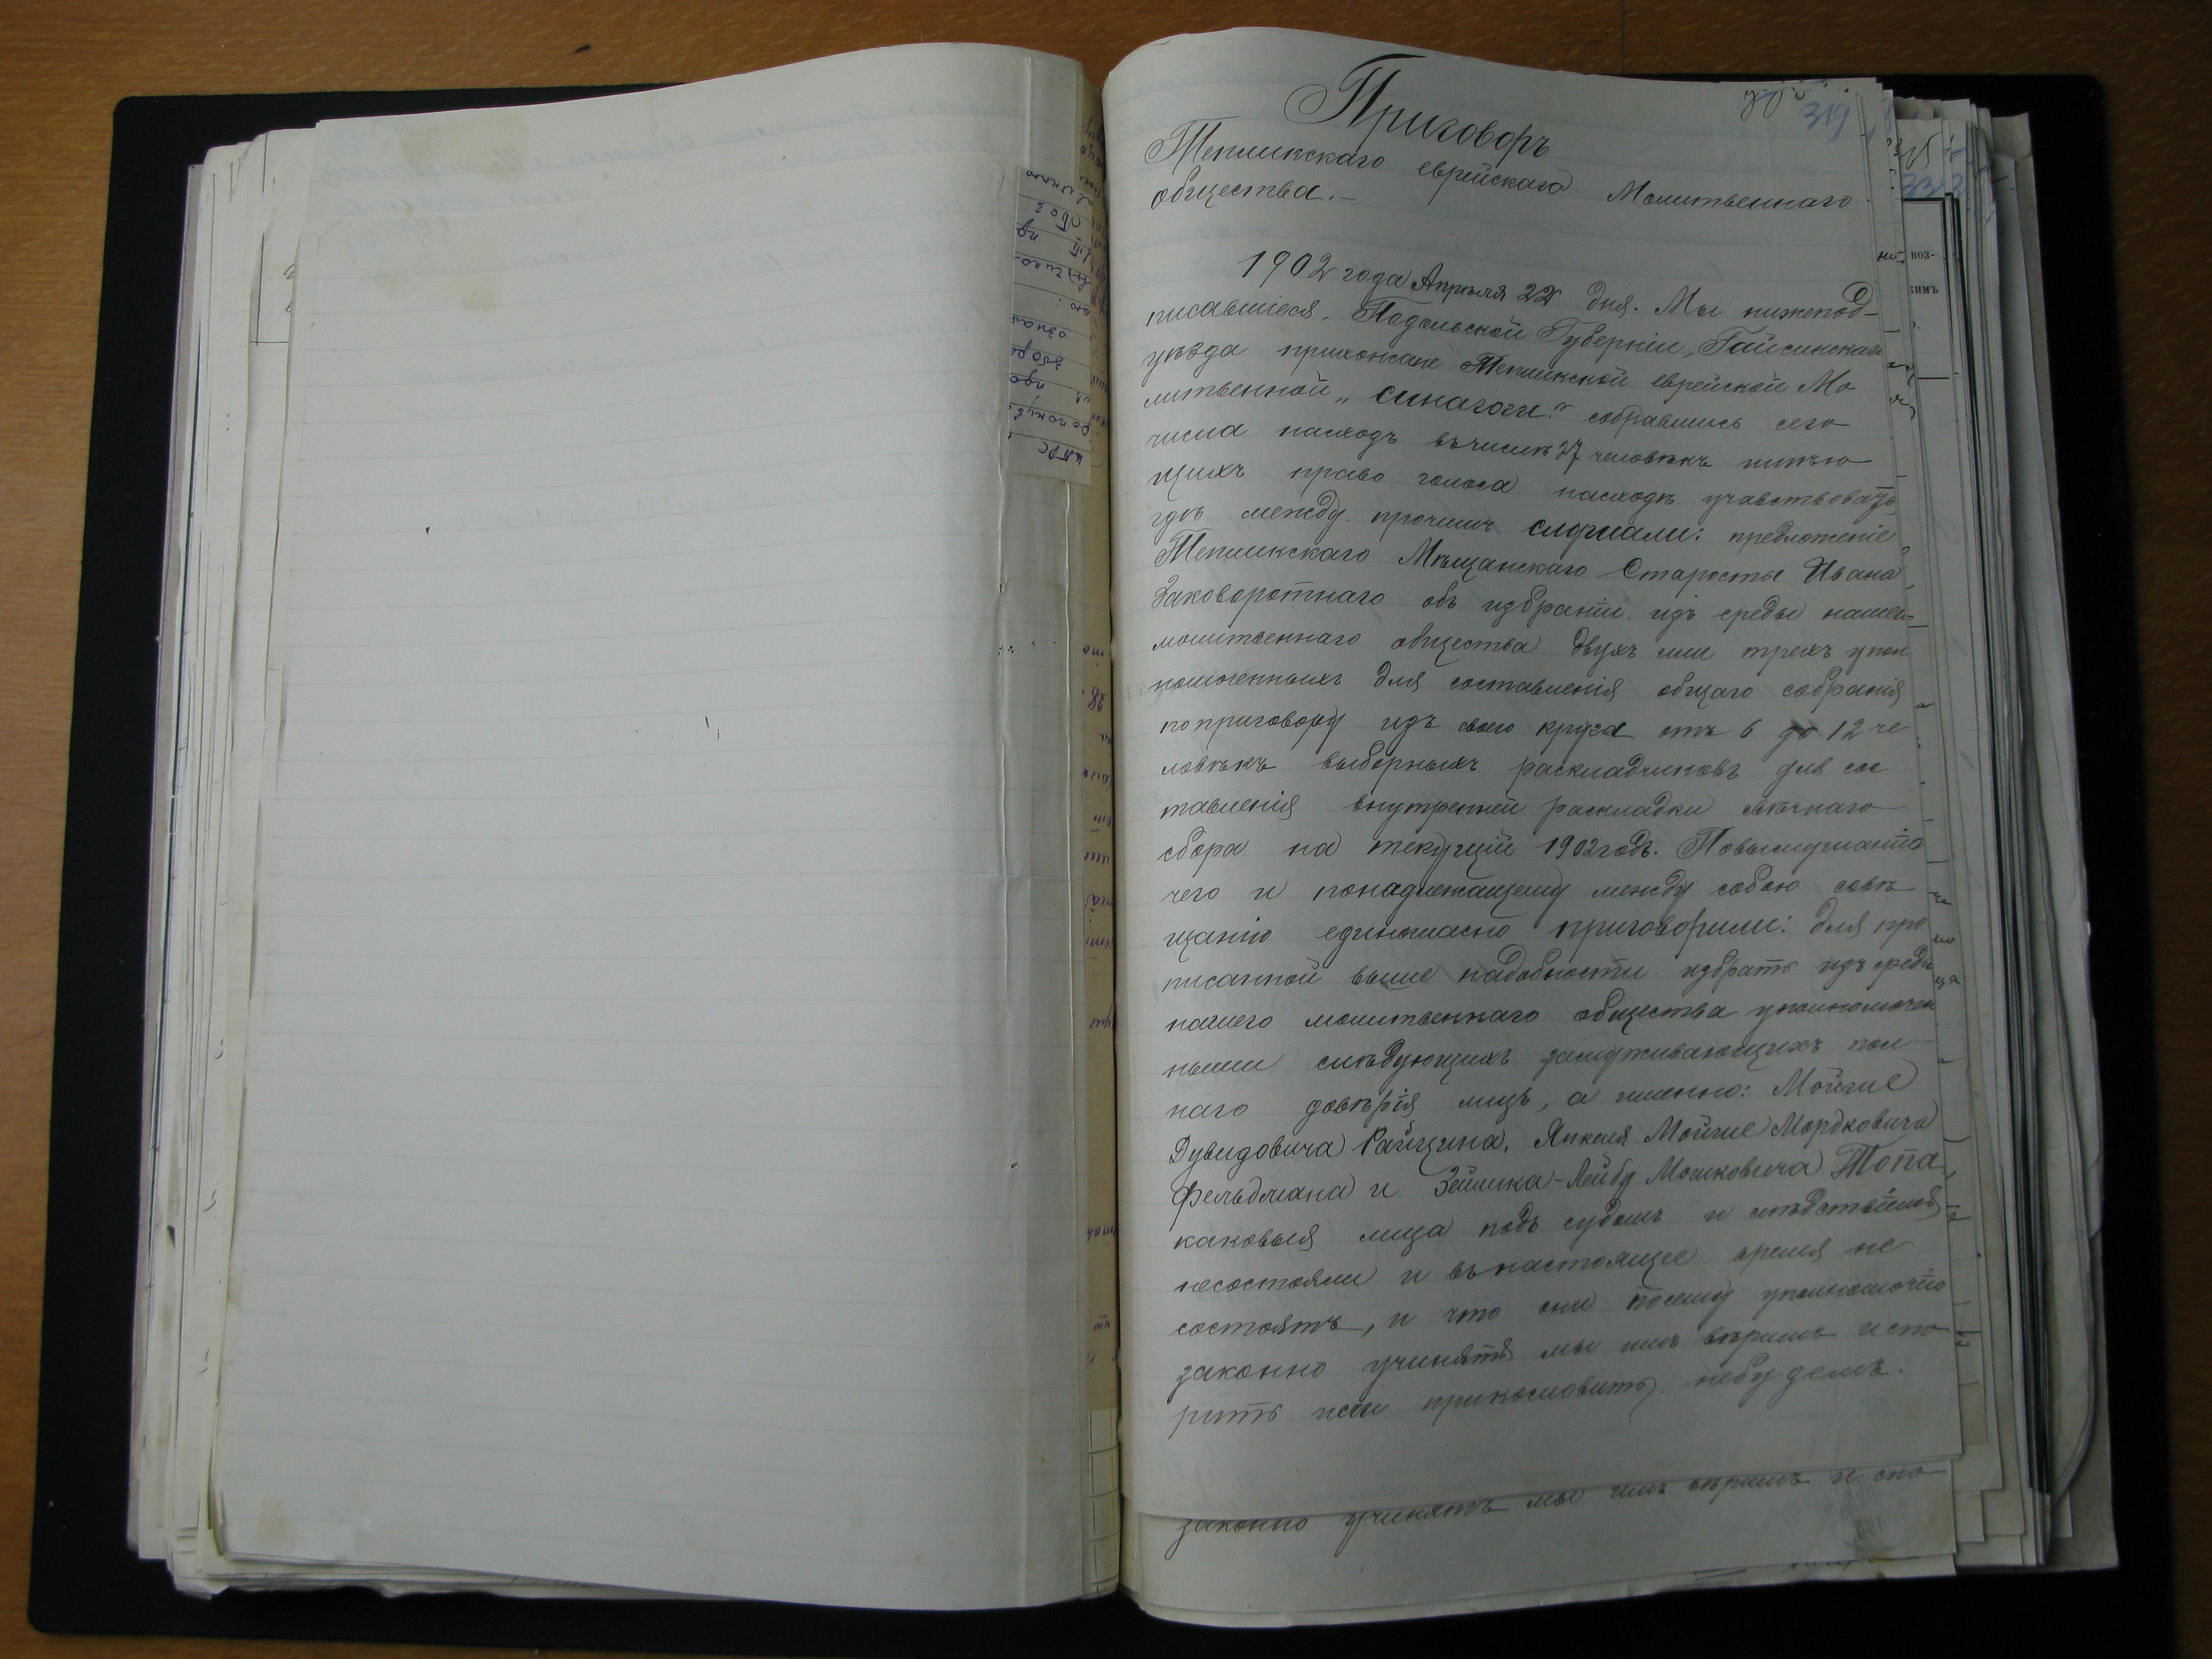 319
Приговоръ
Тепликскаго еврейскаго Молитвеннаго
общества.-
1902 года Апрѣля 22 дня. Мы нижепод-
писавшіеся, Подольской Губерніи, Гайсинскаго
уѣзда прихожане Тепликской еврейской Мо
литвенной „Синагоги" собравшись сего
числа насходъ въчислѣ 27 человѣкъ имѣю
щихъ право голоса насходѣ учавствовать,
гдѣ между прочимъ слушали: предложеніе
Тепликскаго Мѣщанскаго Старосты Ивана
Заковоротнаго объ избраніи изъ среды нашего
молитвеннаго общества двухъ или трехъ упол
номоченныхъ для составленія общаго собранія
поприговору изъ своего круга отъ 6 до 12 че
ловѣкъ выборныхъ раскладчиковъ для сос
тавленія внутренней раскладки свѣчнаго
сбора на текущій 1902 годъ. Повыслушаніи
чего и понадлежащему между собою совѣ
щанію единогласно приговорили: для про
писанной выше надобности избрать изъ среды
нашего молитвеннаго общества уполномочен
ными слѣдующихъ заслуживающихъ пол-
наго довѣрія лицъ, а именно: Мойше
Дувидовича Райцина, Янкеля Мойше Мордковича
Фельдмана и Зейлика-Лейбу Мошковича Топа,
каковыя лица подъ судомъ и слѣдствіемъ
несостояли и внастоящее время не
состоятъ, и что они посему уполномочію
законно учинятъ мы имъ вѣримъ и спо
рить или прикословить небудемъ.
законно учинятъ мы имъ вѣримъ и спо